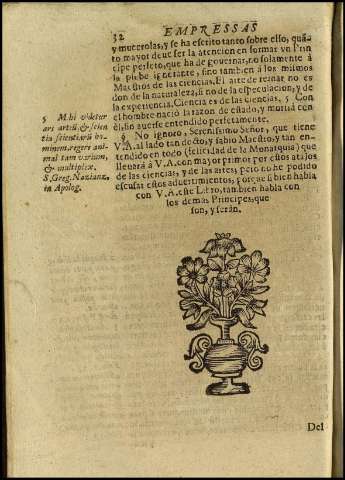 32 EMPRESSAS
y mucerolas, y se ha escrito tanto sobre esso, quãto
mayor deve ser la atencion en formar vn Principe
perfeto, que ha de governar, no solamente à
la plebe ignorante, sino tambien à los mismos
Maestros de las ciencias. El arte de reinar no es
don de la naturaleza, si no de la especulacion, y de
la experiencia. Ciencia es de las ciencias, 5 Con
el hombre naciò la razon de estado, y morirà con
èl, sin averse entendido perfetamente.
§ No ignoro, Serenissimo Señor, que tiene
V.A. al lado tan docto, y sabio Maestro, y tan entendido
en todo (felicidad de la Monarquia) que
llevarà à V.A. con mayor primor por estos atajos
de las ciencias, y de las artes; pero no he podido
escusar estos advertimientos, porque si bien habla
con V.A. este Libro, tambien habla con
los demas Principes, que
son, y seràn.
5 Mihi videtur
ars artiũ, & scientia
scientiarũ hominem
regere animal
tam varium,
& multiplex.
S. Greg. Nazianz.
in Apolog.
Del